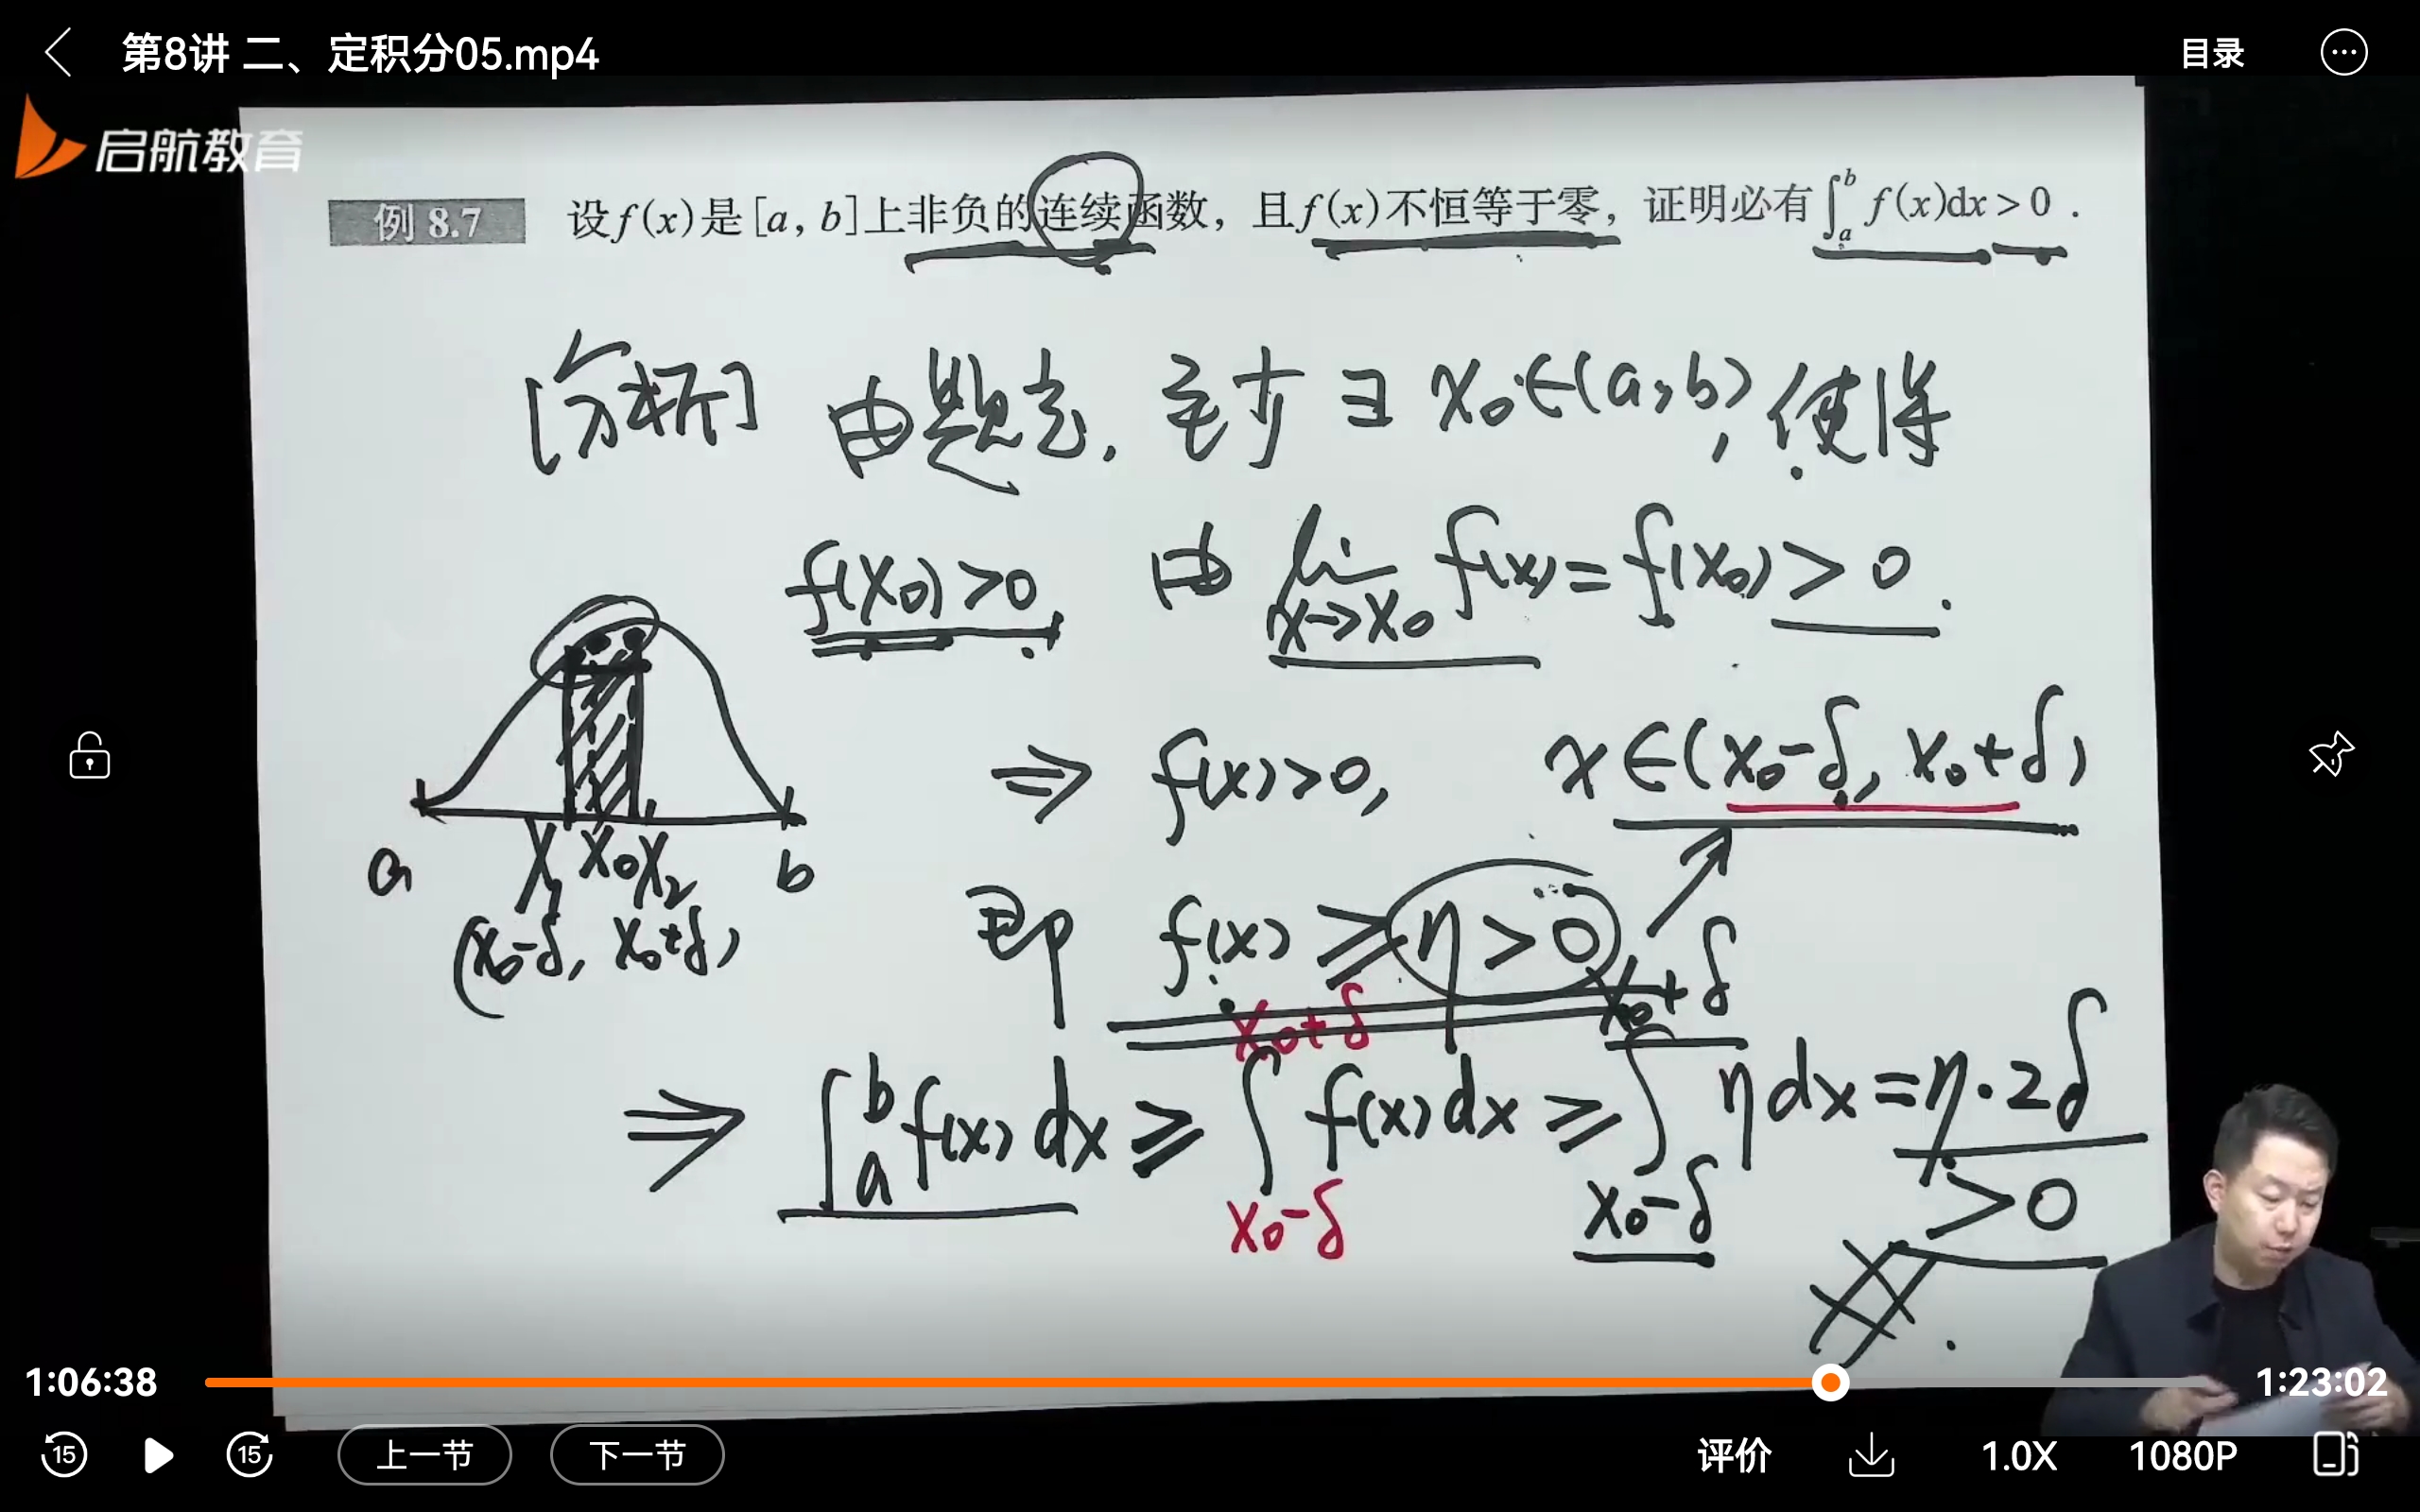 第8讲 二、定积分05.mp4
目录
启航教育
例 8.7 设f(x)是[a, b]上非负的连续函数，且f(x)不恒等于零，证明必有∫_a^b f(x)dx>0.
[分析] 由题意，至少 ∃ x₀∈(a,b)，使得
f(x₀)>0，由 lim_{x→x₀} f(x)=f(x₀)>0.
⇒ f(x)>0, x∈(x₀-δ, x₀+δ)
a x₁ x₀ x₂ b
(x₀-δ, x₀+δ)
即 f(x)≥η>0
⇒ ∫_a^b f(x)dx ≥ ∫_{x₀-δ}^{x₀+δ} f(x)dx ≥ ∫_{x₀-δ}^{x₀+δ} ηdx=η·2δ
>0
1:06:38
1:23:02
15
15
上一节
下一节
评价
1.0X
1080P